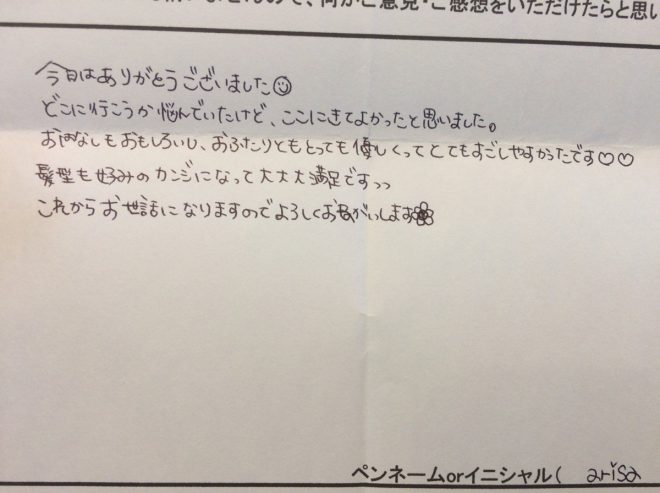 ませんので、何かご意見・ご感想をいただけたらと思い
今日はありがとうございました☺
どこに行こうか悩んでいたけど、ここにきてよかったと思いました。
おはなしもおもしろいし、おふたりともとっても優しくってとてもすごしやすかったです♡♡
髪型も好みのカンジになって大大大満足ですっっ
これからお世話になりますのでよろしくお願いします
ペンネームorイニシャル( arisa